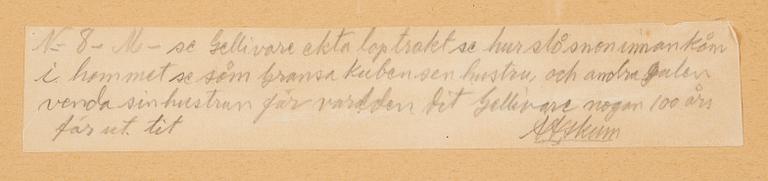 N- 8- M- se Gellivare ekta lop trakt se hur stå snon innan kåm
i hemmet se såm bransa kuben sen hustru, och andra galen
venda sin hustrun får varlden dit Gellivare nogan 100 års
får ut. tit